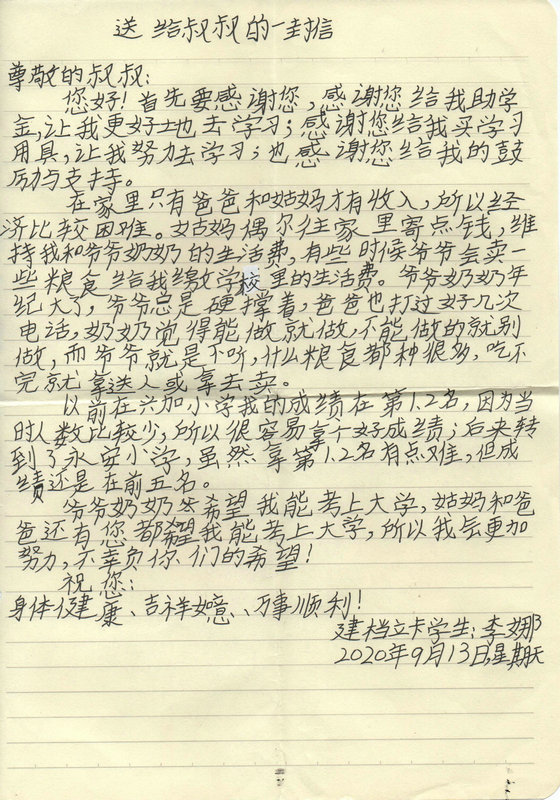 送给叔叔的一封信
尊敬的叔叔:
您好!首先要感谢您,感谢您给我助学
金,让我更好地去学习;感谢您给我买学习
用具,让我努力去学习;也感谢您给我的鼓
励与支持。
在家里只有爸爸和姑妈才有收入,所以经
济比较困难。姑妈偶尔往家里寄点钱,维
持我和爷爷奶奶的生活费,有些时候爷爷会卖一
些粮食给我缴学校里的生活费。爷爷奶奶年
纪大了,爷爷总是硬撑着,爸爸也打过好几次
电话,奶奶觉得能做就做,不能做的就别
做,而爷爷就是不听,什么粮食都种很多,吃不
完就拿送人或拿去卖。
以前在兴加小学我的成绩在第1.2名,因为当
时人数比较少,所以很容易拿个好成绩;后来转
到了永安小学,虽然拿第1.2名有点难,但成
绩还是在前五名。
爷爷奶奶希望我能考上大学,姑妈和爸
爸还有您都希望我能考上大学,所以我会更加
努力,不辜负你们的希望!
祝您:
身体健康、吉祥如意、万事顺利!
建档立卡学生:李娜
2020年9月13日,星期天